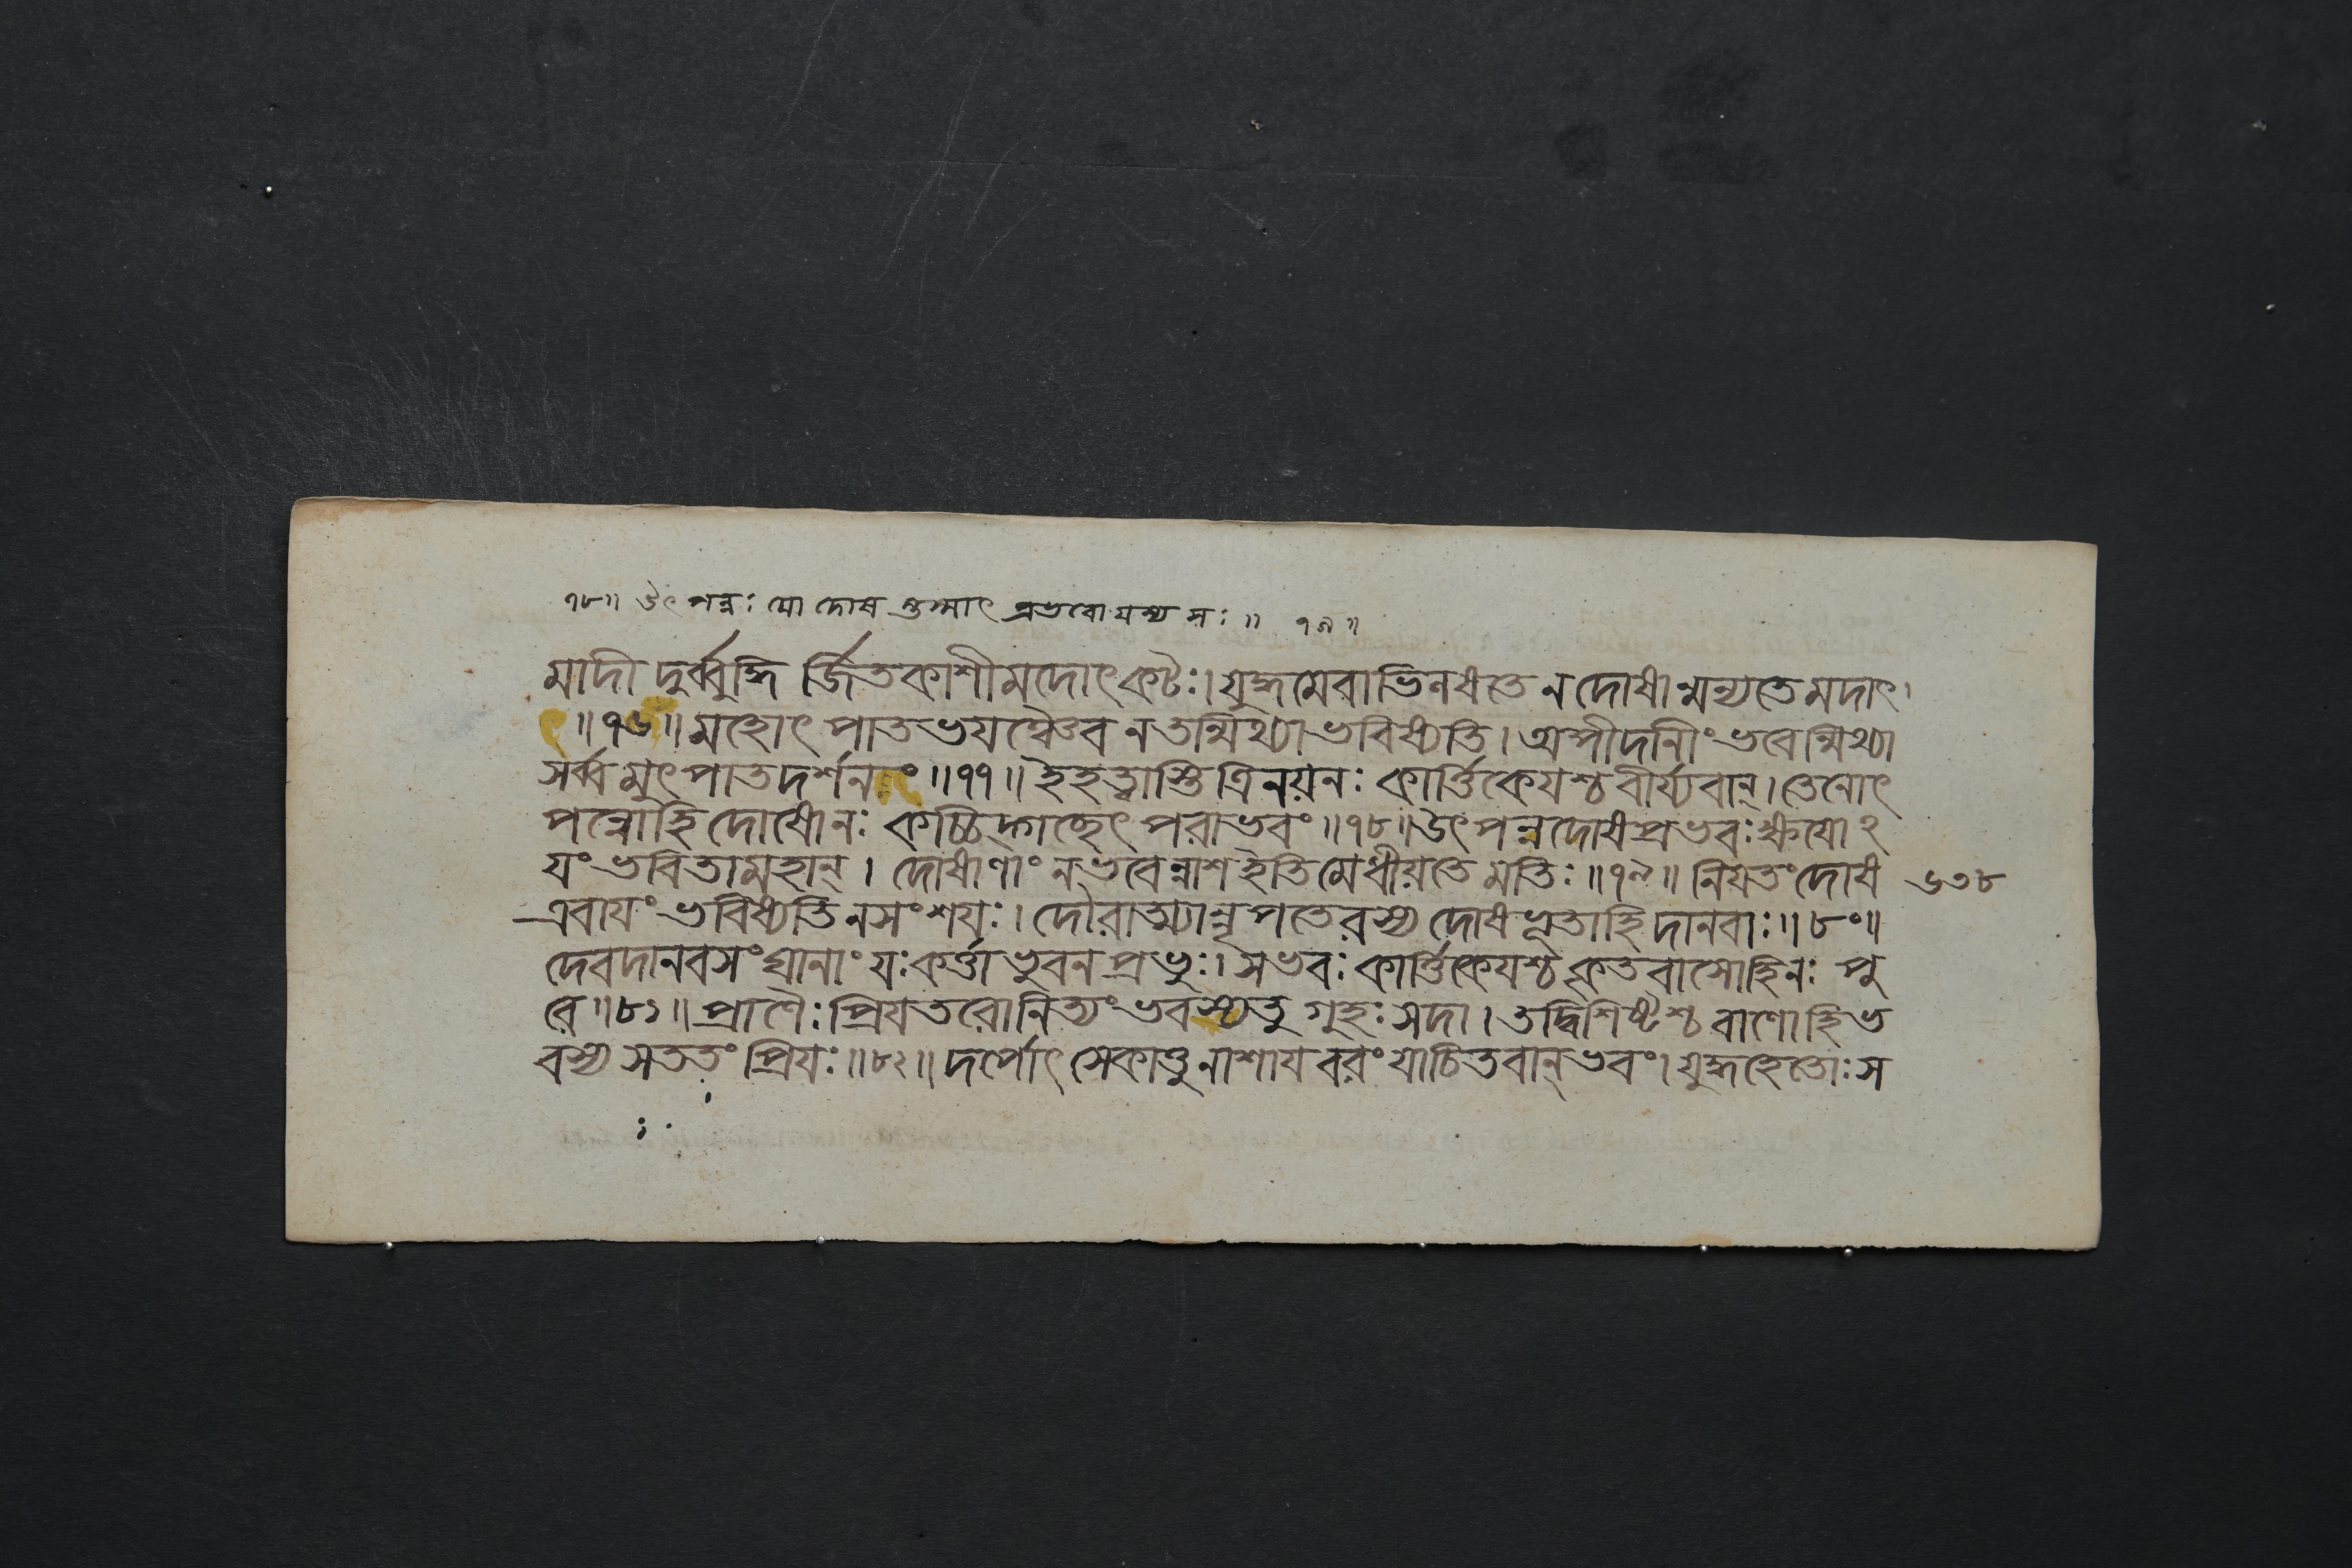 ৭৮॥ উৎপন্নঃ যো দোষ স্তস্মাৎ প্রভবোযস্য সঃ॥ ৭৯॥
মাদী দুর্ব্বুদ্ধি র্জিতকাশীমদোৎকটঃ। যুদ্ধমেবাভিলষতে ন দোষান্মন্যতেমদাৎ।
ৎ॥৭৬॥ মহোৎপাতভযঞ্চৈব নতন্মিথ্যাভবিষ্যতি। অপীদানীং ভবেন্মিথ্যা
সর্ব্বমুৎপাতদর্শনং॥৭৭॥ ইহত্বাস্তিত্রিনয়নঃ কার্ত্তিকেযশ্চ বীর্য্যবান্। তেনোৎ
পন্নোহি দোষোনঃ কশ্চিদ্গচ্ছেৎ পরাভবং॥৭৮॥ উৎপন্নদোষপ্রভবঃ ক্ষযোঽ
যং ভবিতামহান্। দোষাণাং নভবেন্নাশ ইতিমেধীয়তে মতিঃ॥৭৯॥ নিযতং দোষ
৬৩৮
এবাযং ভবিষ্যতি নসংশযঃ। দৌরাত্ম্যান্নৃপতেরস্য দোষভূতাহি দানবাঃ॥৮০॥
দেবদানবসংঘানাং যঃ কর্ত্তা ভুবনপ্রভুঃ। সভবঃ কার্ত্তিকেযশ্চ কৃতবাসোহিনঃ পু
রে॥৮১॥ প্রাণৈঃ প্রিযতরোনিত্যং ভবস্যতু গুহঃ সদা। তদ্বিশিষ্টশ্চ বাণোহি ভ
বস্য সততং প্রিযঃ॥৮২॥ দর্পোৎসেকাত্তুনাশায বরং যাচিতবান্ ভবং। যুদ্ধহেতোঃ স